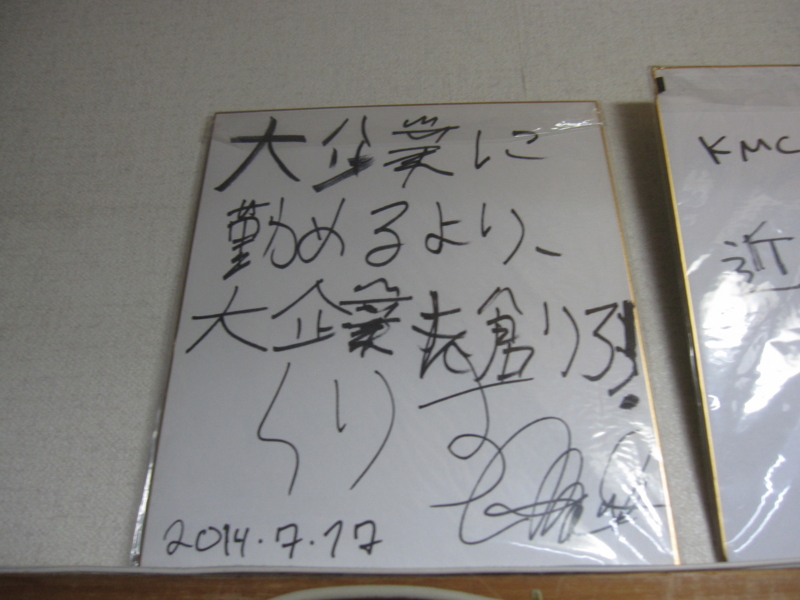 大企業に
勤めるより、
大企業を創りろ!
くりす
2014.7.17
KMC
近